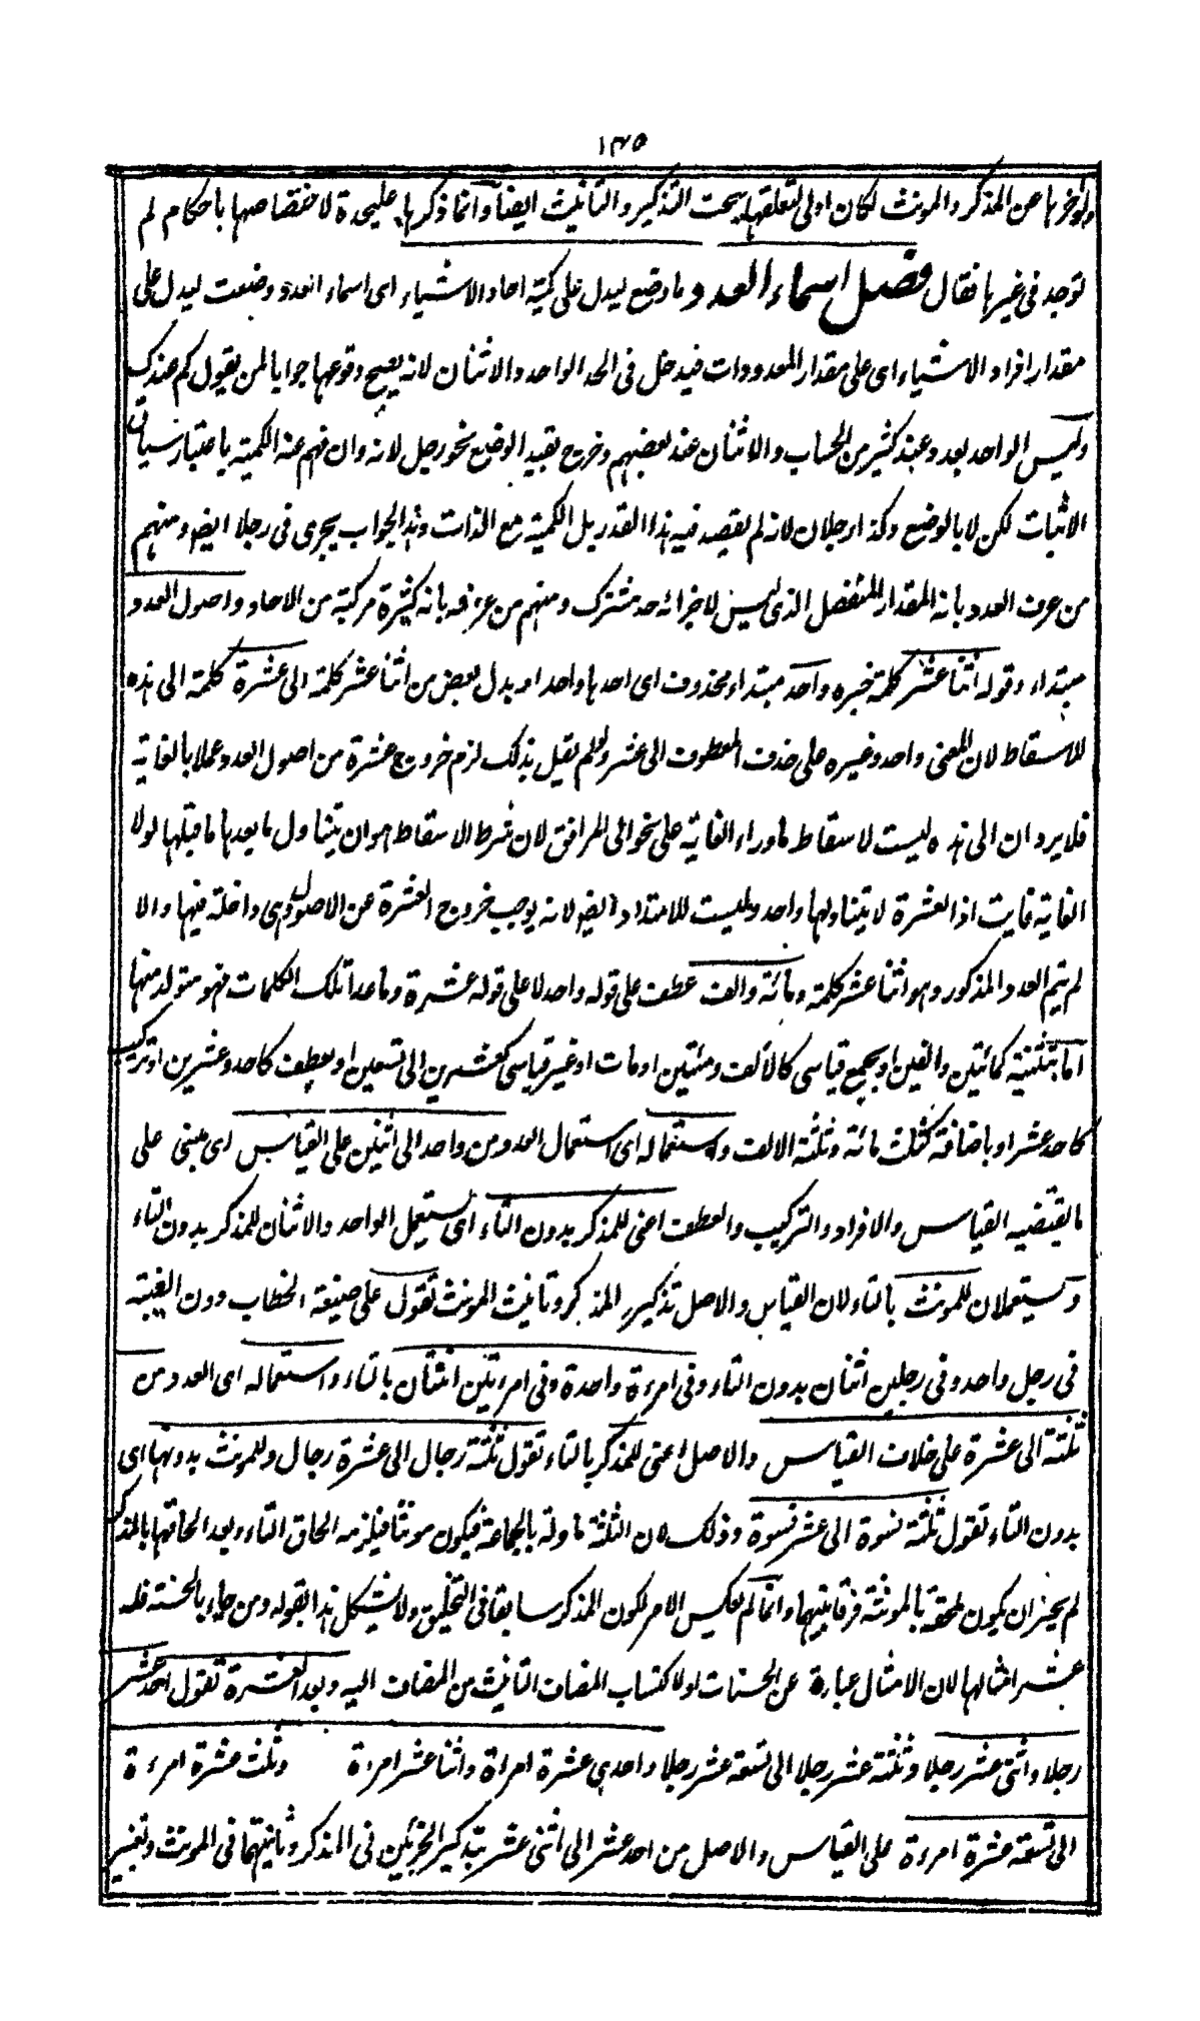 ١٣٥
ولو اخرها عن المذكر والمونث لكان اولى لتعلقها ببحث التذكير والتانيث ايضا وانما ذكرها عليحدة لاختصاصها باحكام لم
توجد فى غيرها فقال فصل اسماء العدد ما وضع ليدل على كمية احاد الاشياء اى اسماء العدد وضعت ليدل على
مقدار افراد الاشياء اى على مقدار المعدودات فيدخل فى الحد الواحد والاثنان لانه يصح وقوعها جوابا لمن يقول كم عندك
وليس الواحد بعدد عند كثير من الحساب والاثنان عند بعضهم وخرج بقيد الوضع نحو رجل لانه وان فهم عنه الكمية باعتبار سياق
الاثبات لكن لا بالوضع وكذا رجلان لانه لم يقصد فيه هذا القدر بل الكمية مع الذات وهذا الجواب يجرى فى رجلا ايضا ومنهم
من عرف العدد بانه المقدار المنفصل الذى ليس لاجزائه حد مشترك ومنهم من عرفه بانه كثرة مركبة من الاحاد واصول العدد
مبتداء وقوله اثنا عشر كلمة خبره واحد مبتداء محذوف اى احدها واحد او بدل بعض من اثنا عشر كلمة الى عشرة كلمة الى هذه
للاسقاط لان المعنى واحد وغيره على حذف المعطوف الى عشر ولو لم يقل بذلك لزم خروج عشرة من اصول العدد عملا بالغاية
فلا يرد ان الى هذه ليست لاسقاط ما وراء الغاية على نحو الى المرافق لان شرط الاسقاط هو ان يتناول ما بعدها ما قبلها لولا
الغاية فايت اذ العشرة لا يتناولها واحد وليست للامتداد ايضا لانه يوجب خروج العشرة عن الاصول وهى داخلة فيها والا
لم يتم العدد المذكور وهو اثنا عشر كلمة ومائة والف عطف على قوله واحد لا على قوله عشرة وما عدا تلك الكلمات فهو متولد منها
اما بتثنية كمائتين والفين او بجمع قياسى كالالف ومئتين او مات او غير قياسى كعشرين الى تسعين او بعطف كاحد وعشرين او تركيب
كاحد عشر او باضافة كثلث مائة وثلثة الالف واستعماله اى استعمال العدد من واحد الى اثنين على القياس اى مبنى على
ما يقتضيه القياس والافراد والتركيب والعطف اعنى للمذكر بدون التاء اى يستعمل الواحد والاثنان للمذكر بدون التاء
ويستعملان للمونث بالتاء لان القياس والاصل تذكير المذكر وتانيث المونث تقول على صيغة الخطاب دون الغيبة
فى رجل واحد وفى رجلين اثنان بدون التاء وفى امرءة واحدة وفى امرءتين اثنتان بالتاء واستعماله اى العدد من
ثلثة الى عشرة على خلاف القياس والاصل اعنى للمذكر بالتاء تقول ثلثة رجال الى عشرة رجال وللمونث بدونها اى
بدون التاء تقول ثلث نسوة الى عشر نسوة وذلك لان الثلثة ماولة بالجماعة فيكون مونثا فيلزمه الحاق التاء وبعد الحاقها بالمذكر
لم يجز ان يكون ملحقة بالمونثة فرقا بينهما وانما لم يعكس الامر لكون المذكر سابقا فى التخليق ولا يشكل هذا بقوله ومن جاء بالحسنة فله
عشر امثالها لان الامثال عبارة عن الحسنات او لاكتساب المضاف التانيث من المضاف اليه وبعد العشرة تقول احد عشر
رجلا واثنى عشر رجلا وثلثة عشر رجلا الى تسعة عشر رجلا واحدى عشرة امراة واثنا عشر امرءة وثلث عشرة امرءة
الى تسعة عشرة امرءة على القياس والاصل من احد عشر الى اثنى عشر بتذكير الجزئين فى المذكر وتانيثهما فى المونث وتغيير